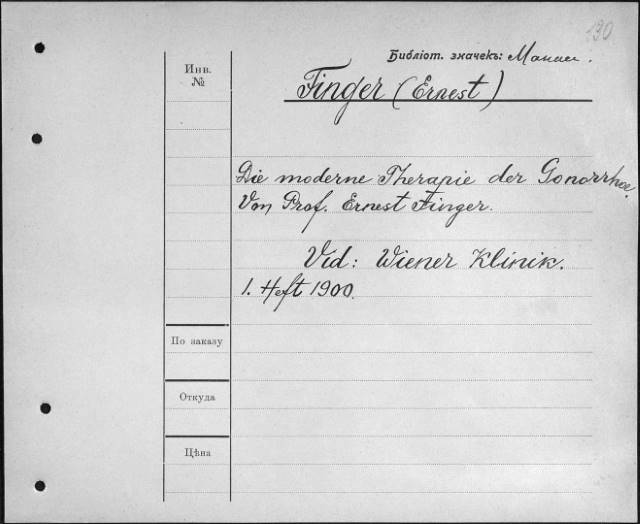 130
Библіот. значекъ:
Инв.
№
Finger (Ernest)
Die moderne Therapie der Gonorrhoe.
Von Prof. Ernest Finger.
Vid: Wiener Klinik.
1. Heft 1900.
По заказу
Откуда
Цѣна